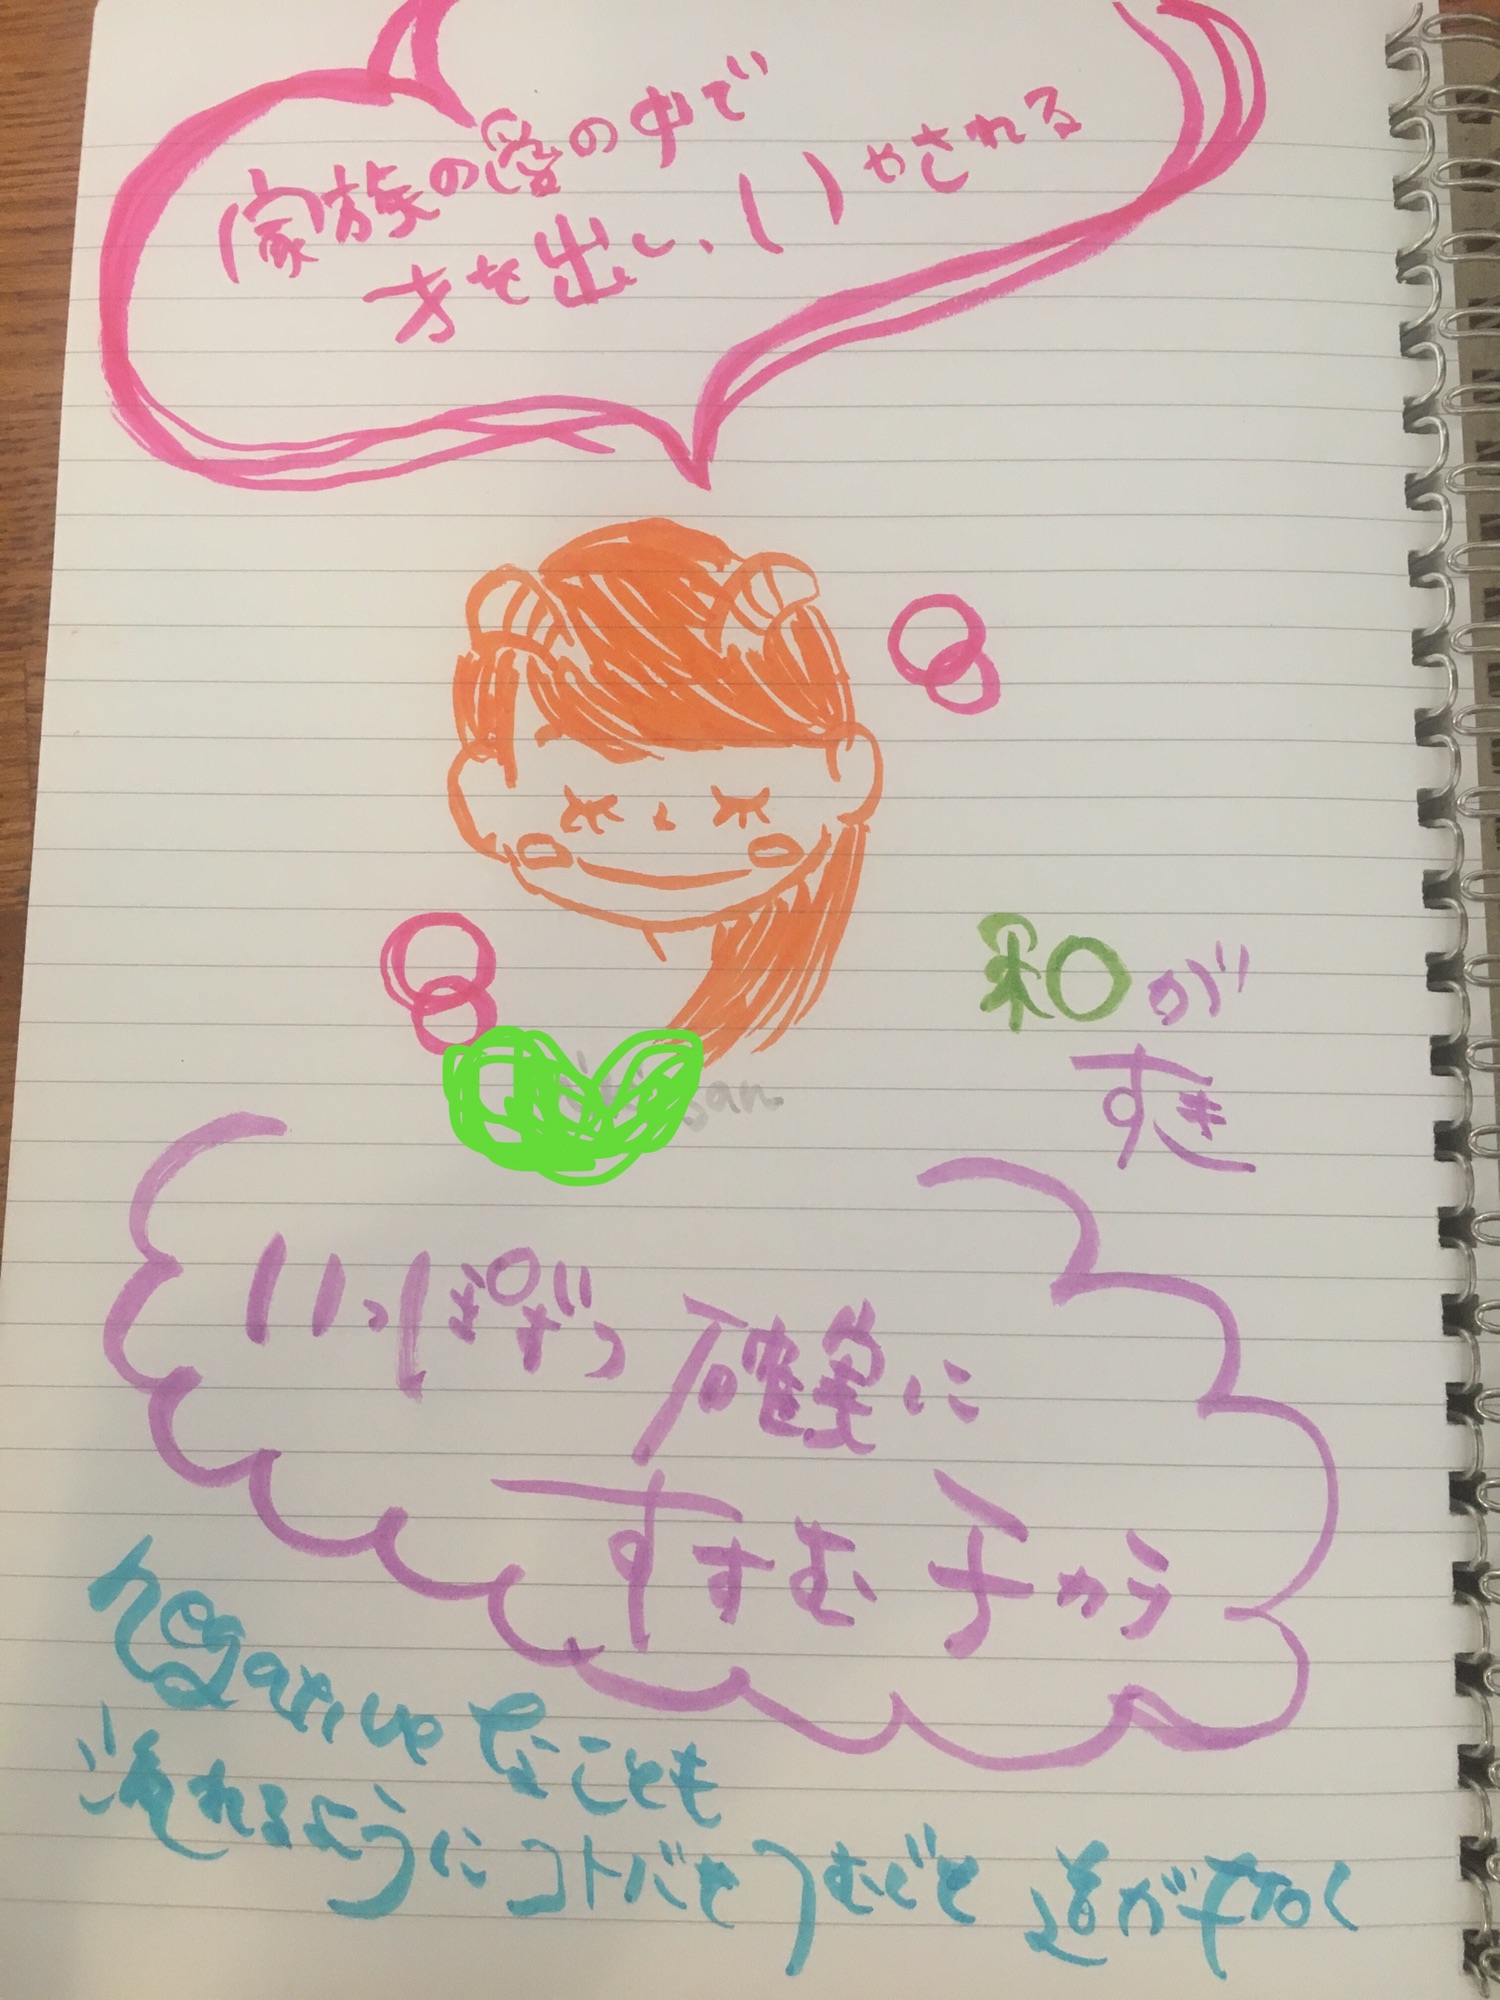 家族の愛の中で
才を出し、いやされる
san
和が
すき
いっぽずつ確実に
すすむチカラ
negativeなことも
流れるようにコトバをつむぐと道がひらく